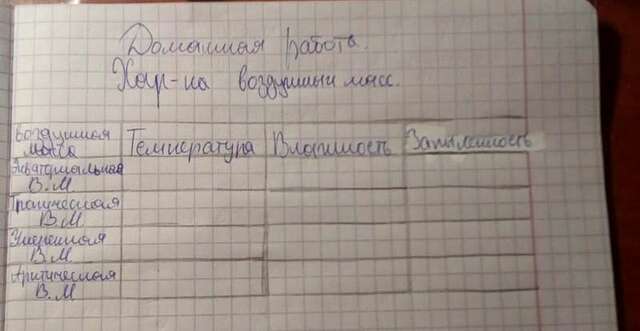 Домашняя работа.
Хар-ка воздушных масс.
Воздушная масса Температура Влажность Запыленность
Экваториальная В.М
Тропическая В.М
Умеренная В.М
Арктическая В.М